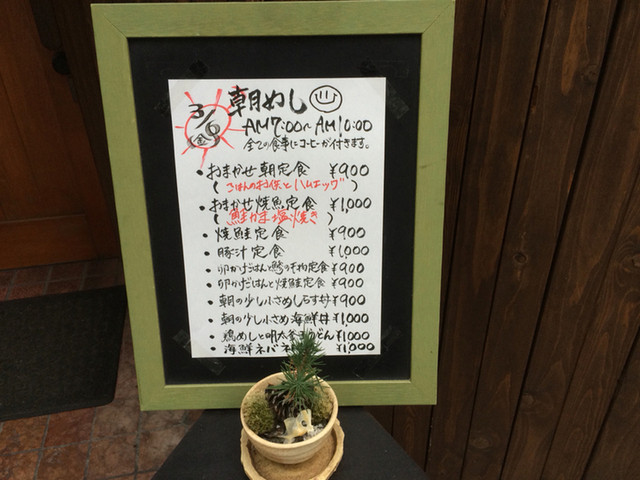 3/6
(金)
朝めし
AM7:00~AM10:00
全ての食事にコーヒーが付きます。
・おまかせ朝定食 ¥900
(ごはんのお供とハムエッグ)
・おまかせ焼魚定食 ¥1,000
(鮭かま塩焼き)
・焼鮭定食 ¥900
・豚汁定食 ¥1,000
・卵かけごはんと鯵の干物定食 ¥900
・卵かけごはんと焼鮭定食 ¥900
・朝の少し小さめしらす丼 ¥900
・朝の少し小さめ海鮮丼 ¥1,000
・鶏めしと明太釜玉うどん ¥1,000
・海鮮ネバネ ¥1,000